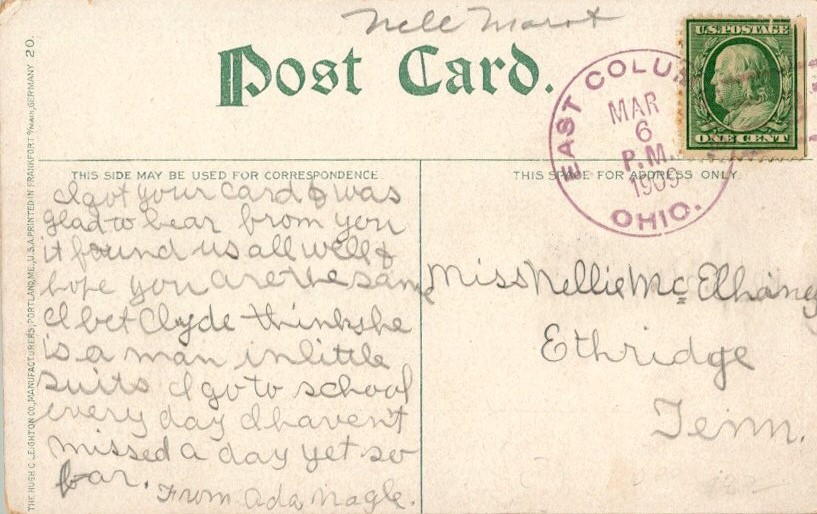 Nell Marot
Post Card.
U.S. POSTAGE
ONE CENT
EAST COLUM
MAR
6
P.M.
1909
OHIO.
THIS SIDE MAY BE USED FOR CORRESPONDENCE
THIS SPACE FOR ADDRESS ONLY.
I got your card & was
glad to hear from you
it found us all well &
hope you are the same
I bet Clyde thinks he
is a man in little
suits I go to school
every day I haven't
missed a day yet so
far. From Ada Nagle.
Miss Nellie McElhaney
Ethridge
Tenn.
THE HUGH C. LEIGHTON CO., MANUFACTURERS, PORTLAND, ME., U.S.A. PRINTED IN FRANKFORT o/MAIN, GERMANY 20.